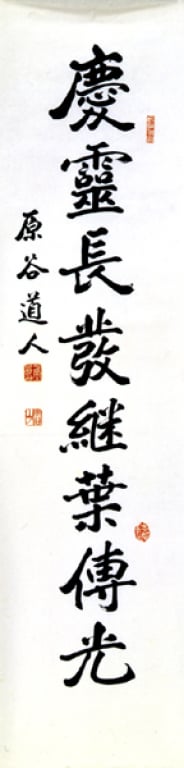 慶靈長發継葉傳光
原谷道人